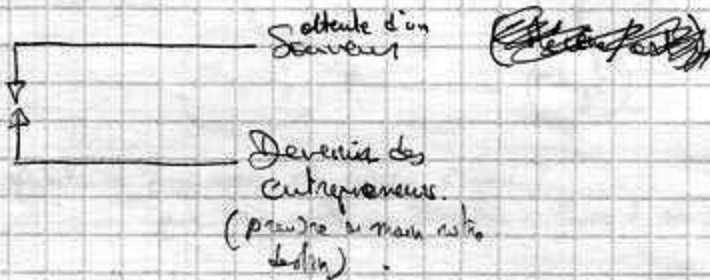 attente d'un
Sauveur
Devenir des
entrepreneurs.
(prendre en main notre
destin).